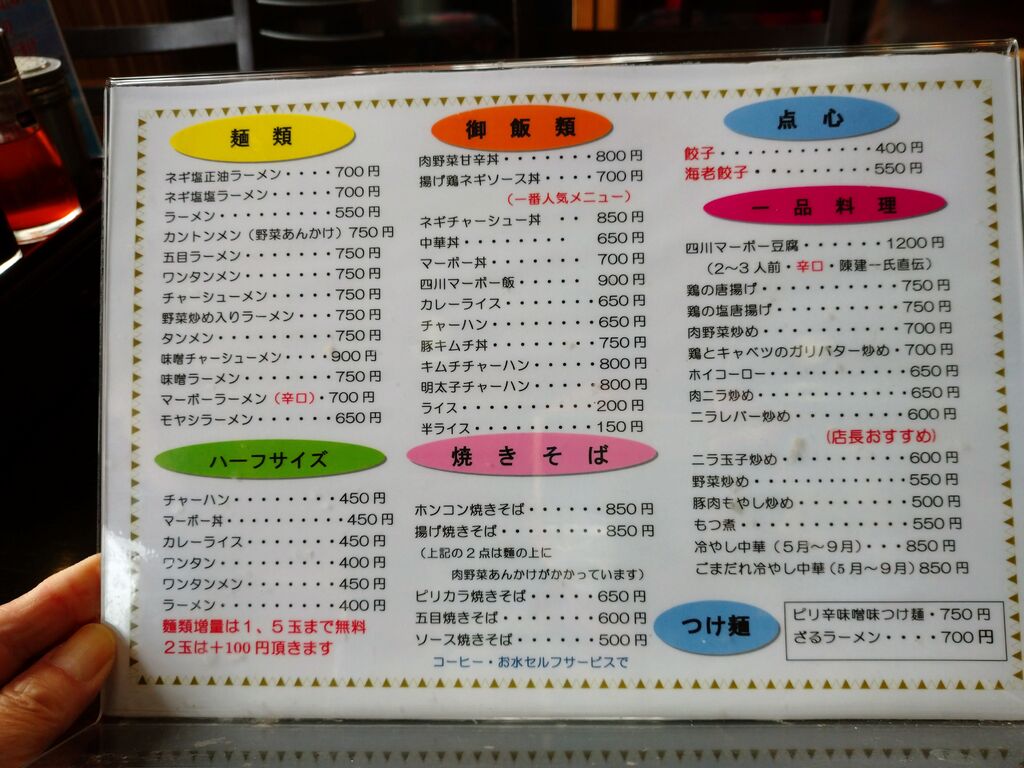 麺類
ネギ塩正油ラーメン・・・・700円
ネギ塩塩ラーメン・・・・・700円
ラーメン・・・・・・・・・550円
カントンメン（野菜あんかけ）750円
五目ラーメン・・・・・・・750円
ワンタンメン・・・・・・・750円
チャーシューメン・・・・・750円
野菜炒め入りラーメン・・・750円
タンメン・・・・・・・・・750円
味噌チャーシューメン・・・・900円
味噌ラーメン・・・・・・・750円
マーボーラーメン（辛口）・700円
モヤシラーメン・・・・・・650円
ハーフサイズ
チャーハン・・・・・・・・450円
マーボー丼・・・・・・・・・450円
カレーライス・・・・・・・450円
ワンタン・・・・・・・・・400円
ワンタンメン・・・・・・・450円
ラーメン・・・・・・・・・400円
麺類増量は１、５玉まで無料
２玉は＋100円頂きます
御飯類
肉野菜甘辛丼・・・・・・・800円
揚げ鶏ネギソース丼・・・・700円
（一番人気メニュー）
ネギチャーシュー丼　・・　850円
中華丼・・・・・・・・　650円
マーボー丼・・・・・・・　700円
四川マーボー飯・・・・・　900円
カレーライス・・・・・・・650円
チャーハン・・・・・・・・650円
豚キムチ丼・・・・・・・・750円
キムチチャーハン・・・・・800円
明太子チャーハン・・・・・800円
ライス・・・・・・・・・・200円
半ライス・・・・・・・・・150円
焼きそば
ホンコン焼きそば・・・・・・850円
揚げ焼きそば・・・・・・・・850円
（上記の２点は麺の上に
肉野菜あんかけがかかっています）
ピリカラ焼きそば・・・・・650円
五目焼きそば・・・・・・・600円
ソース焼きそば・・・・・・500円
コーヒー・お水セルフサービスで
点心
餃子・・・・・・・・・・・・400円
海老餃子・・・・・・・・・550円
一品料理
四川マーボー豆腐・・・・・・1200円
（２～３人前・辛口・陳建一氏直伝）
鶏の唐揚げ・・・・・・・・・・750円
鶏の塩唐揚げ・・・・・・・・・750円
肉野菜炒め・・・・・・・・・・700円
鶏とキャベツのガリバター炒め・700円
ホイコーロー・・・・・・・・・・650円
肉ニラ炒め・・・・・・・・・・・650円
ニラレバー炒め・・・・・・・・600円
（店長おすすめ）
ニラ玉子炒め・・・・・・・・・600円
野菜炒め・・・・・・・・・・・550円
豚肉もやし炒め・・・・・・・・500円
もつ煮・・・・・・・・・・・・550円
冷やし中華（５月～９月）・・・850円
ごまだれ冷やし中華（５月～９月）850円
つけ麺
ピリ辛味噌味つけ麺・750円
ざるラーメン・・・・700円